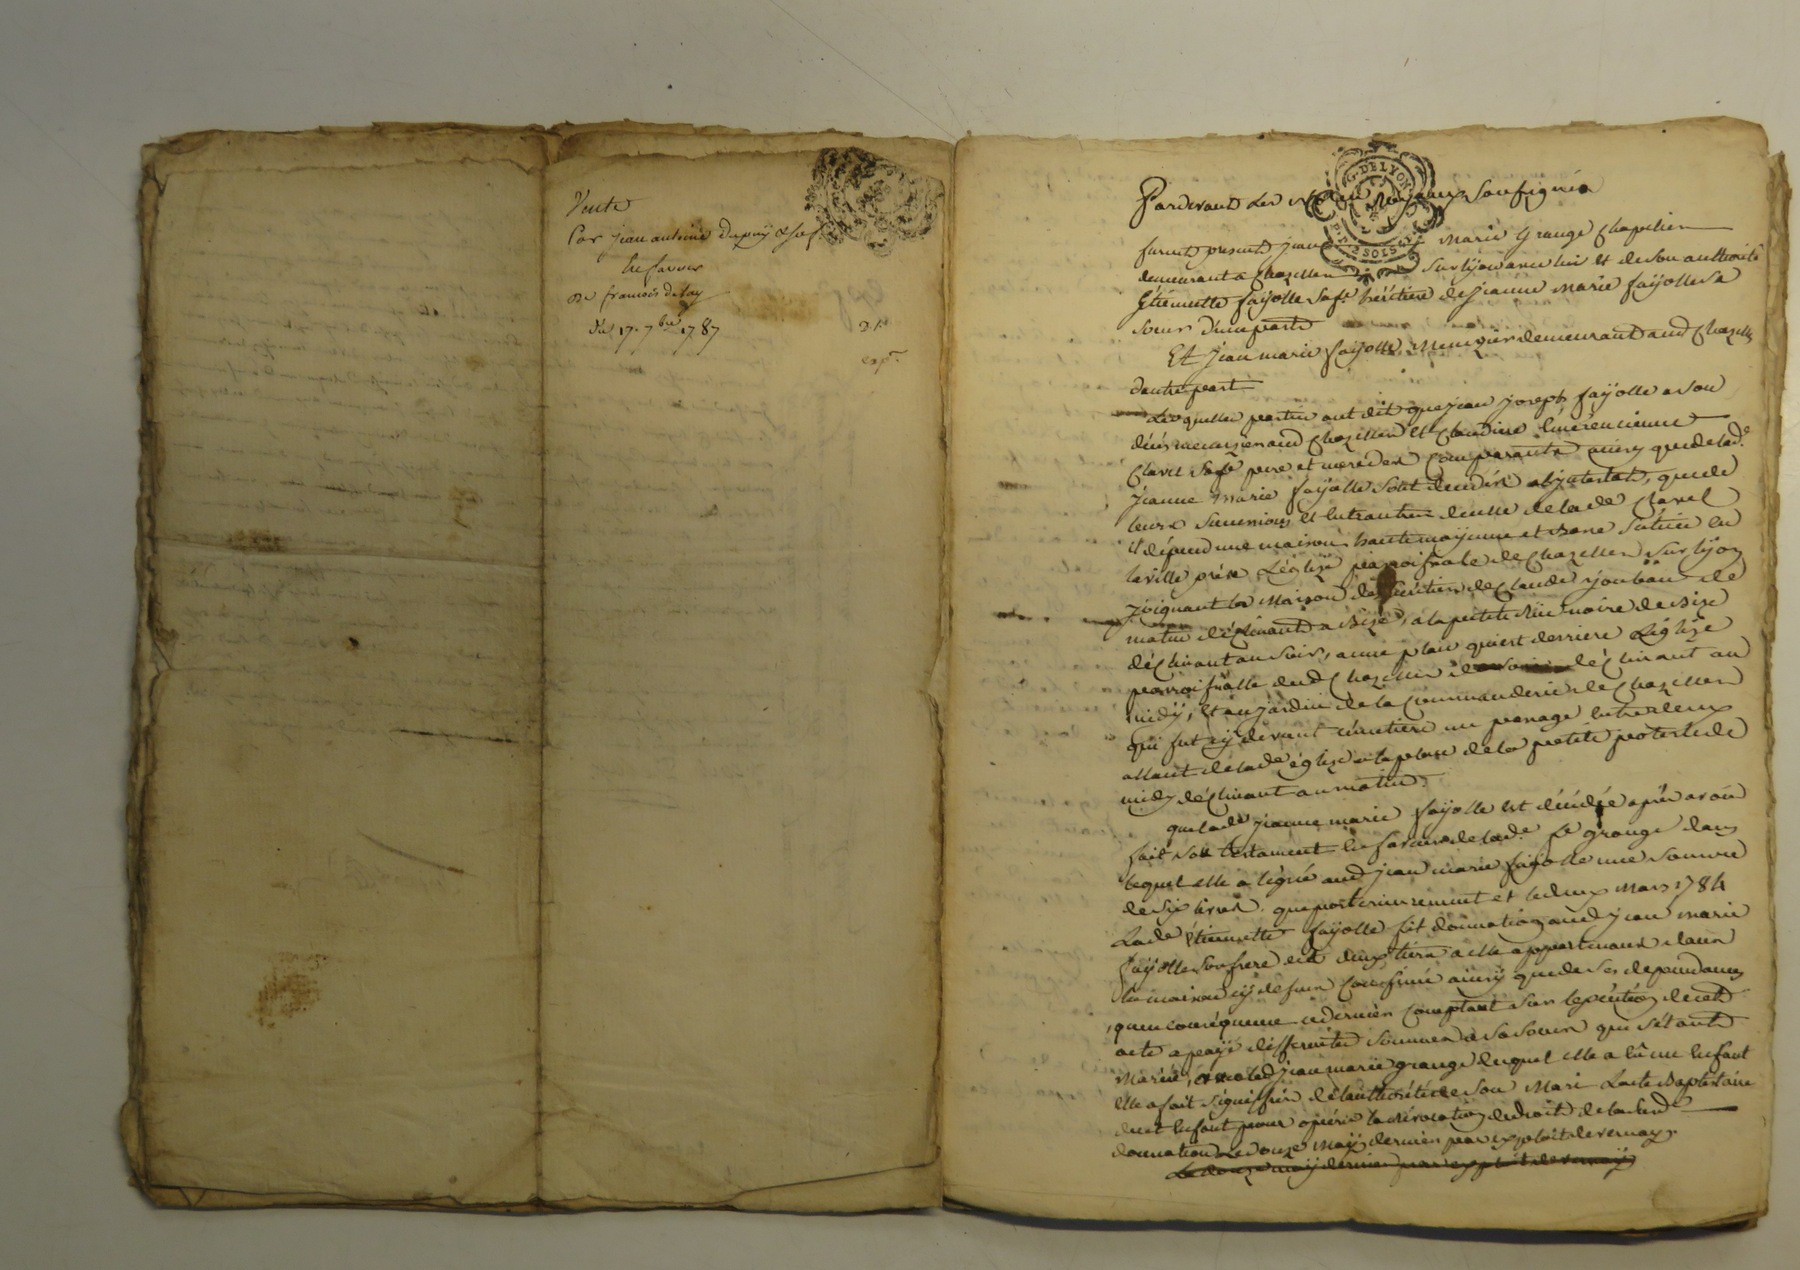 Vente
Par jean antoine dupuy & sa f.
en faveur
de francois delay
du 17. 7bre 1787
exp.
G. DE LYON
SOLS
Pardevant Les soussignés
furent presents jean marie grange chapelier
demeurant a chazelles sur lyon avec lui et de son authorité
Etiennette fayolle sa fe héritiere de jeanne marie fayolle sa
soeur d'une part
Et jean marie fayolle demeurant aud chazelles
d'autre part
Lesquelles parties ont dit que jean joseph fayolle a son
décès aud chazelles et Claudine
Clavel sa fe pere et mere des comparants ainsy que de lade
jeanne marie fayolle sont decedés abjntestat, que de
leurs successions et entrautres de celle de lade Clavel
il dépend une maison haute moyenne et basse située en
la ville près Léglize parroissiale de chazelles sur lyon
joignant la maison des héritiers de claude de
matin déclinant a bize, a la petite rüe noire de bize
déclinant au soir, a une place qui est derriere Léglize
parroissialle dud chazelles de déclinant au
midÿ, et au jardin de la commanderie de chazelles
qui fut cÿ devant cimetiere un passage entre deux
allant de lade églize a la place de la petite porte de
midy déclinant au matin.
que lade jeanne marie fayolle est décédée après avoir
fait son testament en faveur de lade fe grange dans
lequel elle a légué aud jean marie fayolle une somme
de six livres. que posterieurement et le deux mars 1784
Lade étiennette fayolle fit donnation aud jean marie
fayolle son frere des deux tiers a elle appartenans dans
la maison cÿ dessus confinée ainsÿ que de ses dependances
qu'en conséquence ce dernier comptant sur lexécution de cet
acte a payé différentes sommes a sa soeur qui sétant
mariée, avec led jean marie grange duquel elle a eu un enfant
elle a fait signiffier de lauthorité de son mari Lacte Baptistaire
de cet enfant pour opérer la révocation de droit de lade
donnation Le douze maÿ dernier par exploit de
Le douze maÿ dernier par exploit de